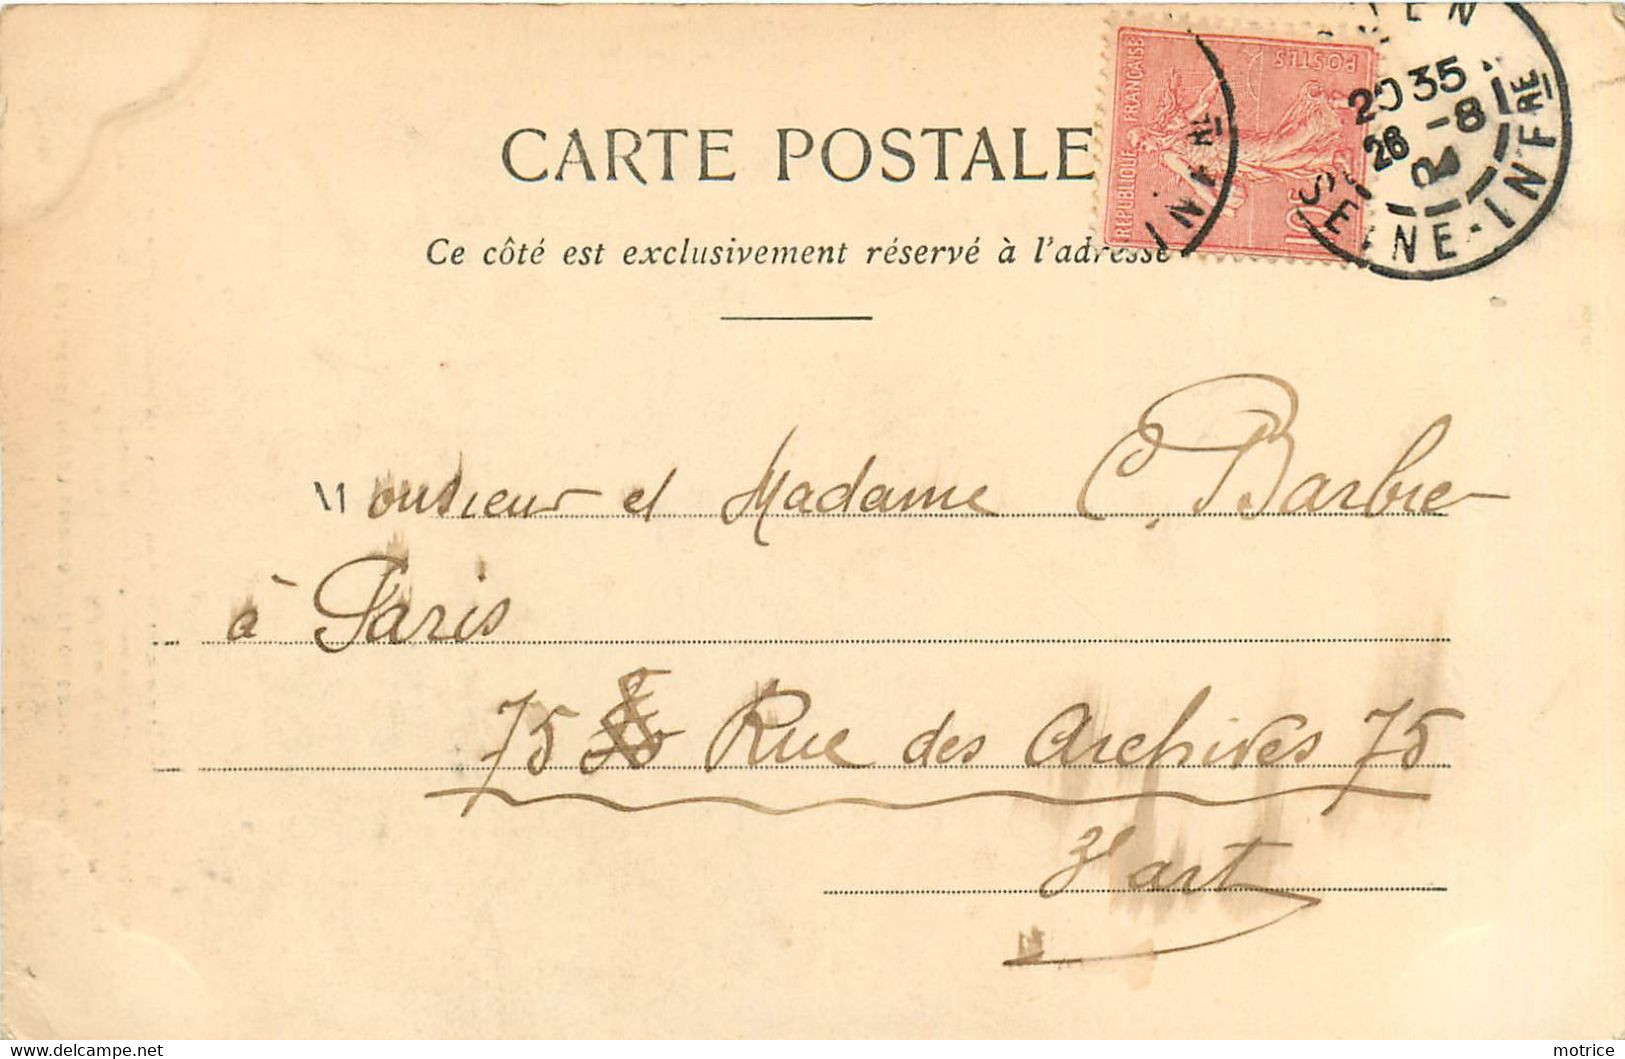 CARTE POSTALE
Ce côté est exclusivement réservé à l'adresse
RÉPUBLIQUE FRANÇAISE
POSTES
10c
20 35
26 -8
SEINE-INFRE
Monsieur et Madame C. Barbier
à Paris
75 Rue des Archives 75
3e art
delcampe.net
motrice